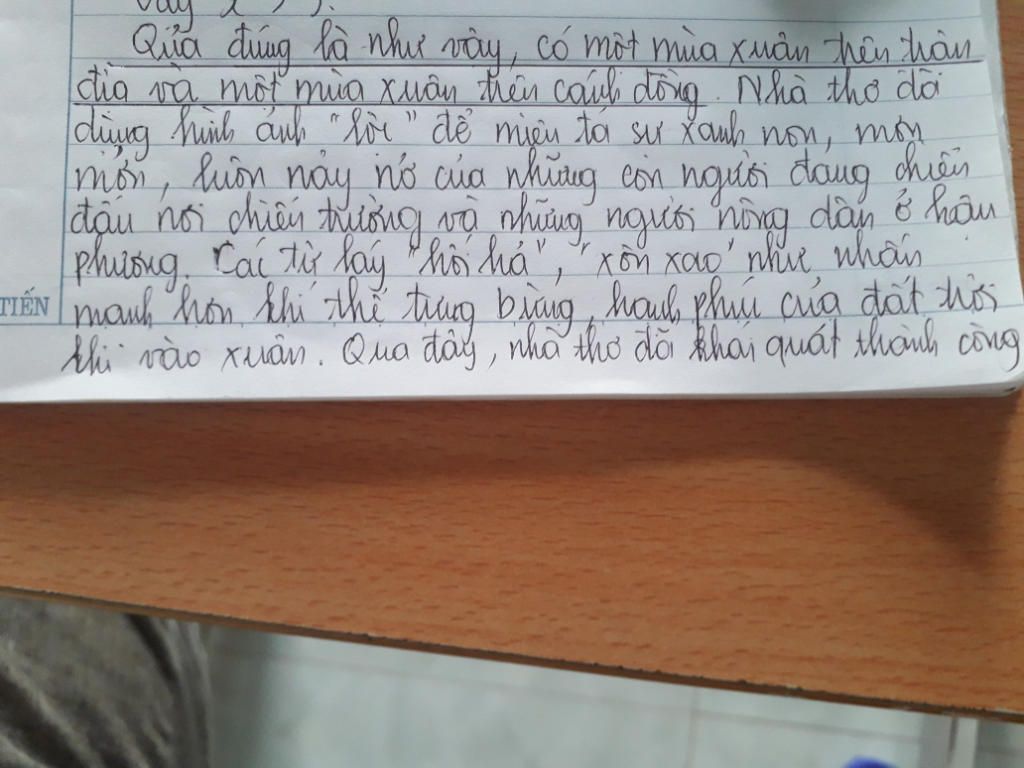 Qủa đúng là như vậy, có một mùa xuân trên trân
địa và một mùa xuân trên cánh đồng. Nhà thơ đã
dùng hình ảnh "lộc" để miêu tả sự xanh non, mơn
mởn, luôn nảy nở của những con người đang chiến
đấu nơi chiến trường và những người nông dân ở hậu
phương. Các từ láy "hối hả", "xôn xao" như nhấn
TIẾN
mạnh hơn khí thế tưng bừng, hạnh phú của đất trời
khi vào xuân. Qua đây, nhà thơ đã khái quát thành công